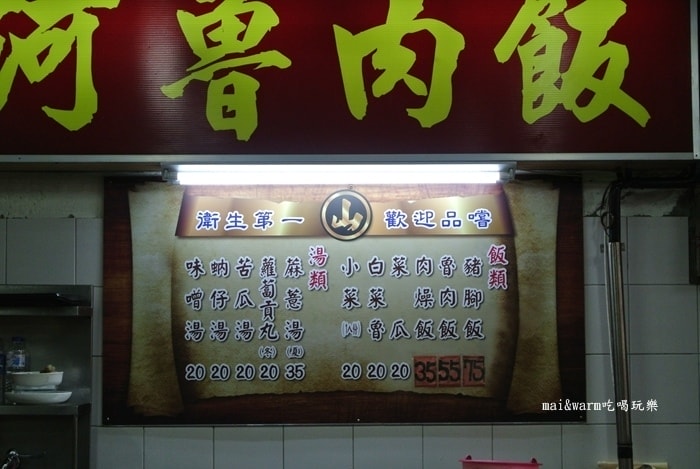 河魯肉飯
衛生第一 山 歡迎品嚐
飯類
豬腳飯 75
魯肉飯 55
肉燥飯 35
菜瓜 20
白菜魯 20
小菜 20
湯類
蔴薏湯(夏) 35
蘿蔔貢丸(冬) 20
苦瓜湯 20
蚋仔湯 20
味噌湯 20
mai&warm吃喝玩樂